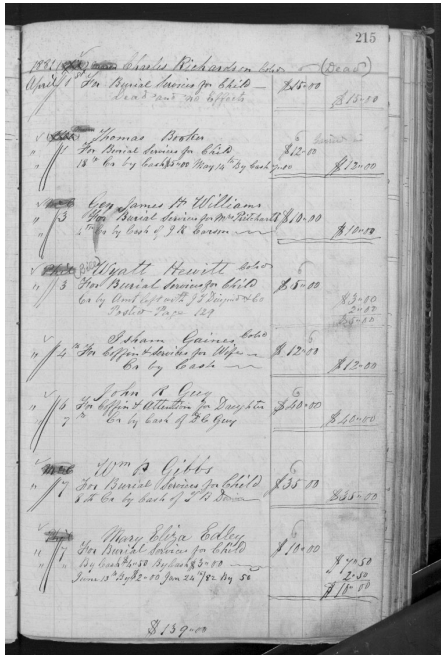 215
1881 Charles Richardson Cold (Dead)
April 1st For Burial Services for Child — $15-00
Dead and no effects $15-00
Thomas Booker
" 1 For Burial Services for Child $12-00
18th Cr by Cash $5-00 May 14th By Cash 7-00 $12-00
James H Williams
" 3 For Burial Services for Mrs $10-00
4th Cr by Cash of J R $10-00
Wyatt Hewitt Cold
" 3 For Burial Services for Child $5-00
Cr by Amt left with J T & Co $3-00
Posted Page 129 2-00
$5-00
Isham Gaines Cold
" 4th For Coffin & Services for Wife $12-00
Cr by Cash $12-00
John R Guy
" 6 For Coffin & Attention for Daughter $40-00
" 7 Cr by Cash of Guy $40-00
Wm B Gibbs
" 7 For Burial Services for Child $35-00
8th Cr by Cash of $35-00
Mary Eliza Edley
" 7 For Burial Services for Child $10-00
By Cash $4-50 By Cash $3-00 $7-50
June 13th By $2-00 Jan 24th/82 By 50 2-50
$10-00
$139-00